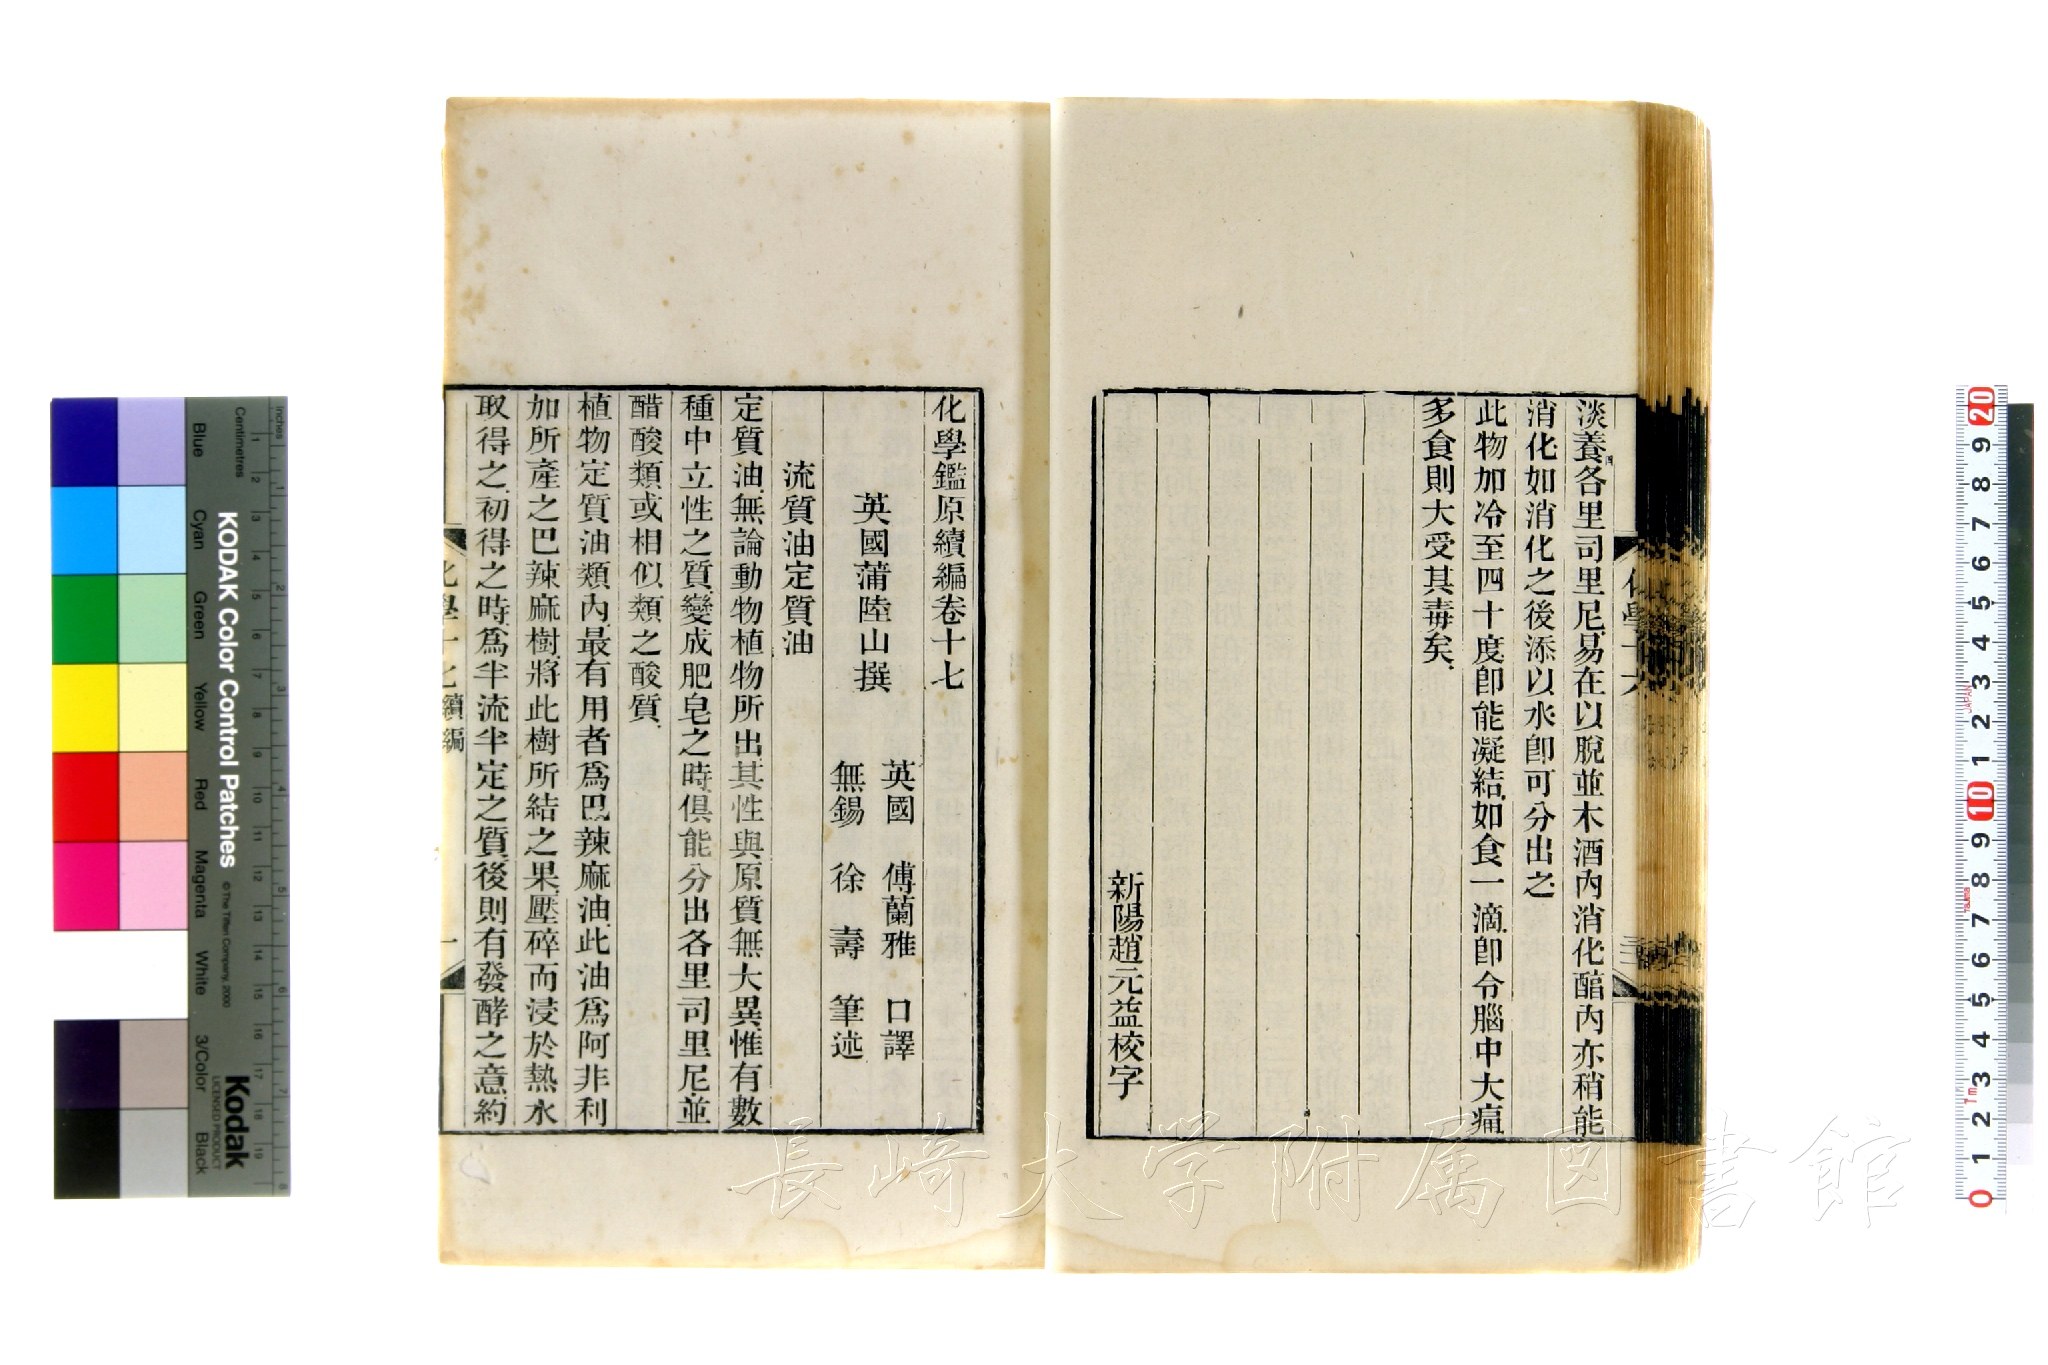 淡養各里司里尼易在以脫並木酒內消化醕內亦稍能
消化如消化之後添以水卽可分出之
此物加冷至四十度卽能凝結如食一滴卽令腦中大痛
多食則大受其毒矣
新陽趙元益校字
化學十六
化學鑑原續編卷十七
英國蒲陸山撰
英國 傅蘭雅 口譯
無錫 徐壽 筆述
流質油定質油
定質油無論動物植物所出其性與原質無大異惟有數
種中立性之質變成肥皂之時俱能分出各里司里尼並
醋酸類或相似類之酸質
植物定質油類內最有用者爲巴辣麻油此油爲阿非利
加所產之巴辣麻樹將此樹所結之果壓碎而浸於熱水
取得之初得之時爲半流半定之質後則有發酵之意約
化學十七 續編
一
長崎大学附属図書館
KODAK Color Control Patches
© The Tiffen Company, 2000
Kodak
LICENSED PRODUCT
Inches
Centimetres
Blue
Cyan
Green
Yellow
Red
Magenta
White
3/Color
Black
JAPAN
Tajima